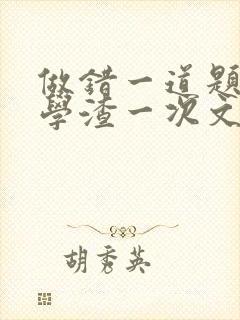 做錯一道題
學渣一次文
胡秀英